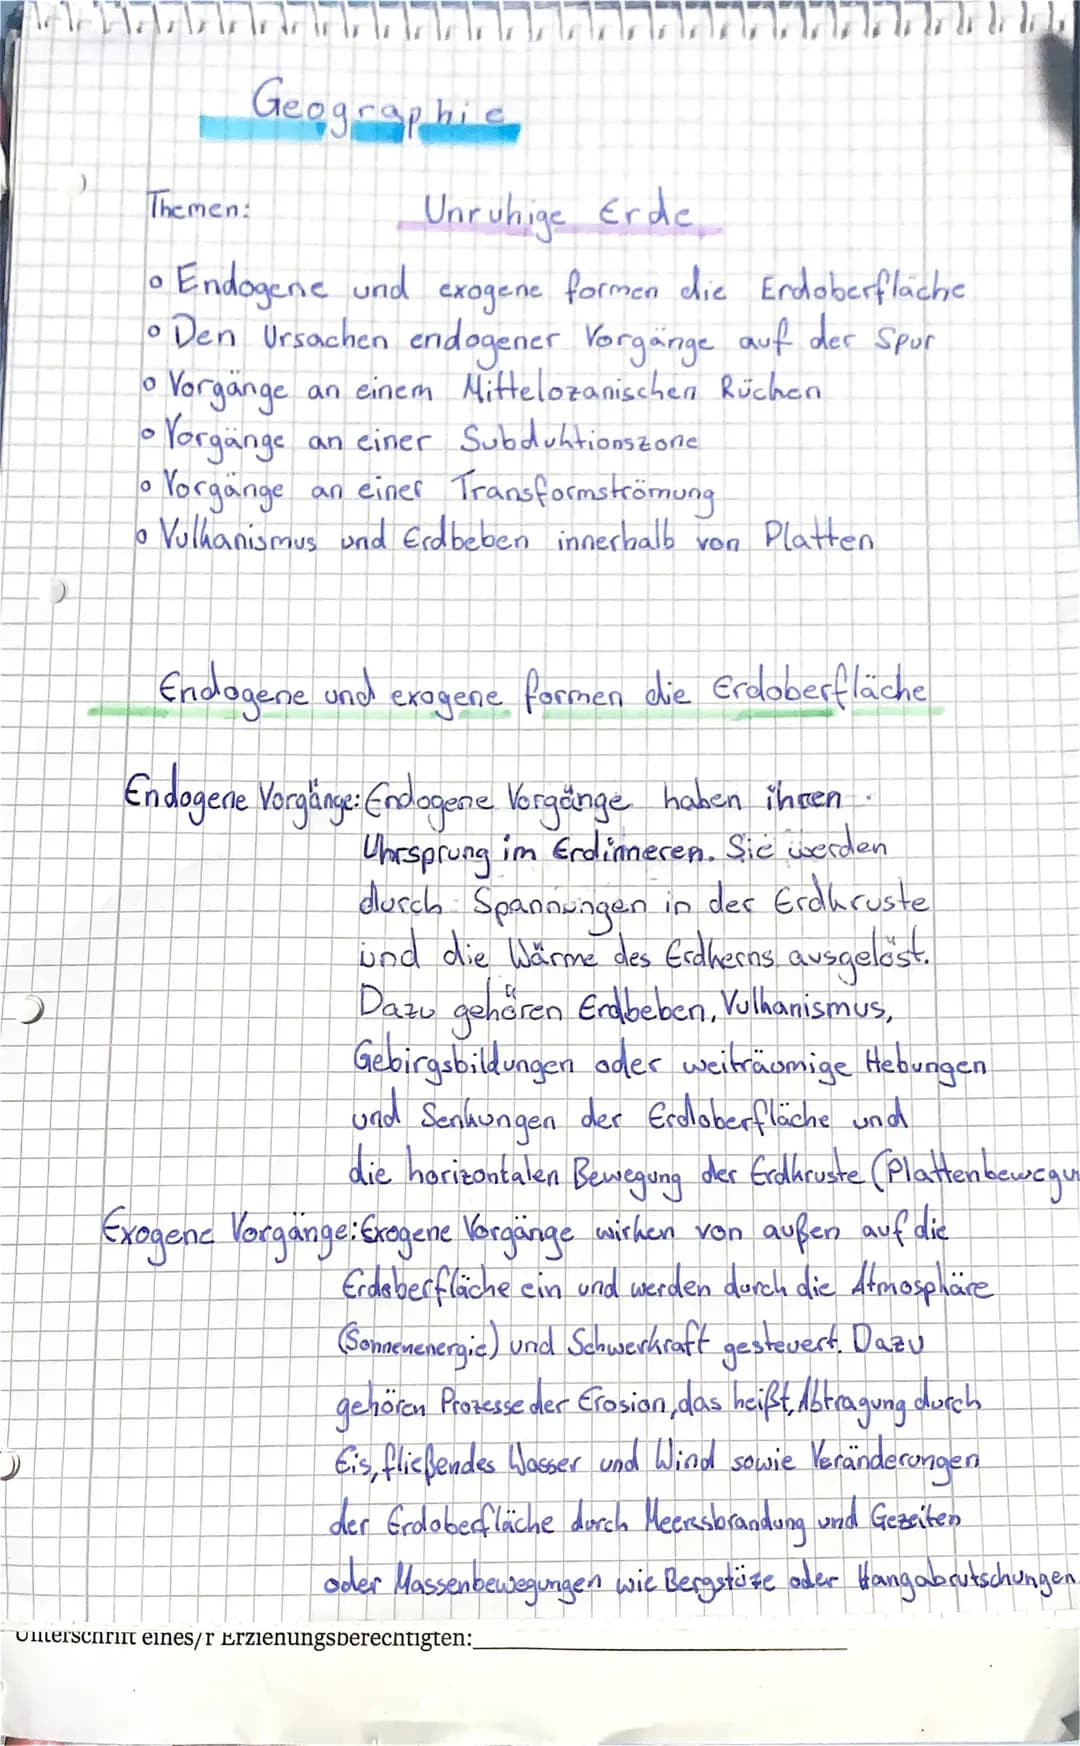 Geographie
Themen: Unruhige Erde
o Endogene und exogene formen die Erdoberfläche
o Den Ursachen endogener Vorgänge auf der Spur
o Vorgänge an einem Mittelozanischen Rücken
o Vorgänge an einer Subduktionszone
o Vorgänge an einer Transformströmung
o Vulkanismus und Erdbeben innerhalb von Platten
Endogene und exogene formen die Erdoberfläche
Endogene Vorgänge: Endogene Vorgänge haben ihren
Uhrsprung im Erdinneren. Sie werden
durch Spannungen in der Erdkruste
und die Wärme des Erdkerns ausgelöst.
Dazu gehören Erdbeben, Vulkanismus,
Gebirgsbildungen oder weiträumige Hebungen
und Senkungen der Erdoberfläche und
die horizontalen Bewegung der Erdkruste (Plattenbewegun
Exogene Vorgänge: Exogene Vorgänge wirken von außen auf die
Erdoberfläche ein und werden durch die Atmosphäre
(Sonnenenergie) und Schwerkraft gesteuert. Dazu
gehören Prozesse der Erosion, das heißt, Abtragung durch
Eis, fließendes Wasser und Wind sowie Veränderungen
der Erdoberfläche durch Meeresbrandung und Gezeiten
oder Massenbewegungen wie Bergstüze oder Hangabrutschungen.
Unterschrift eines/r Erziehungsberechtigten: